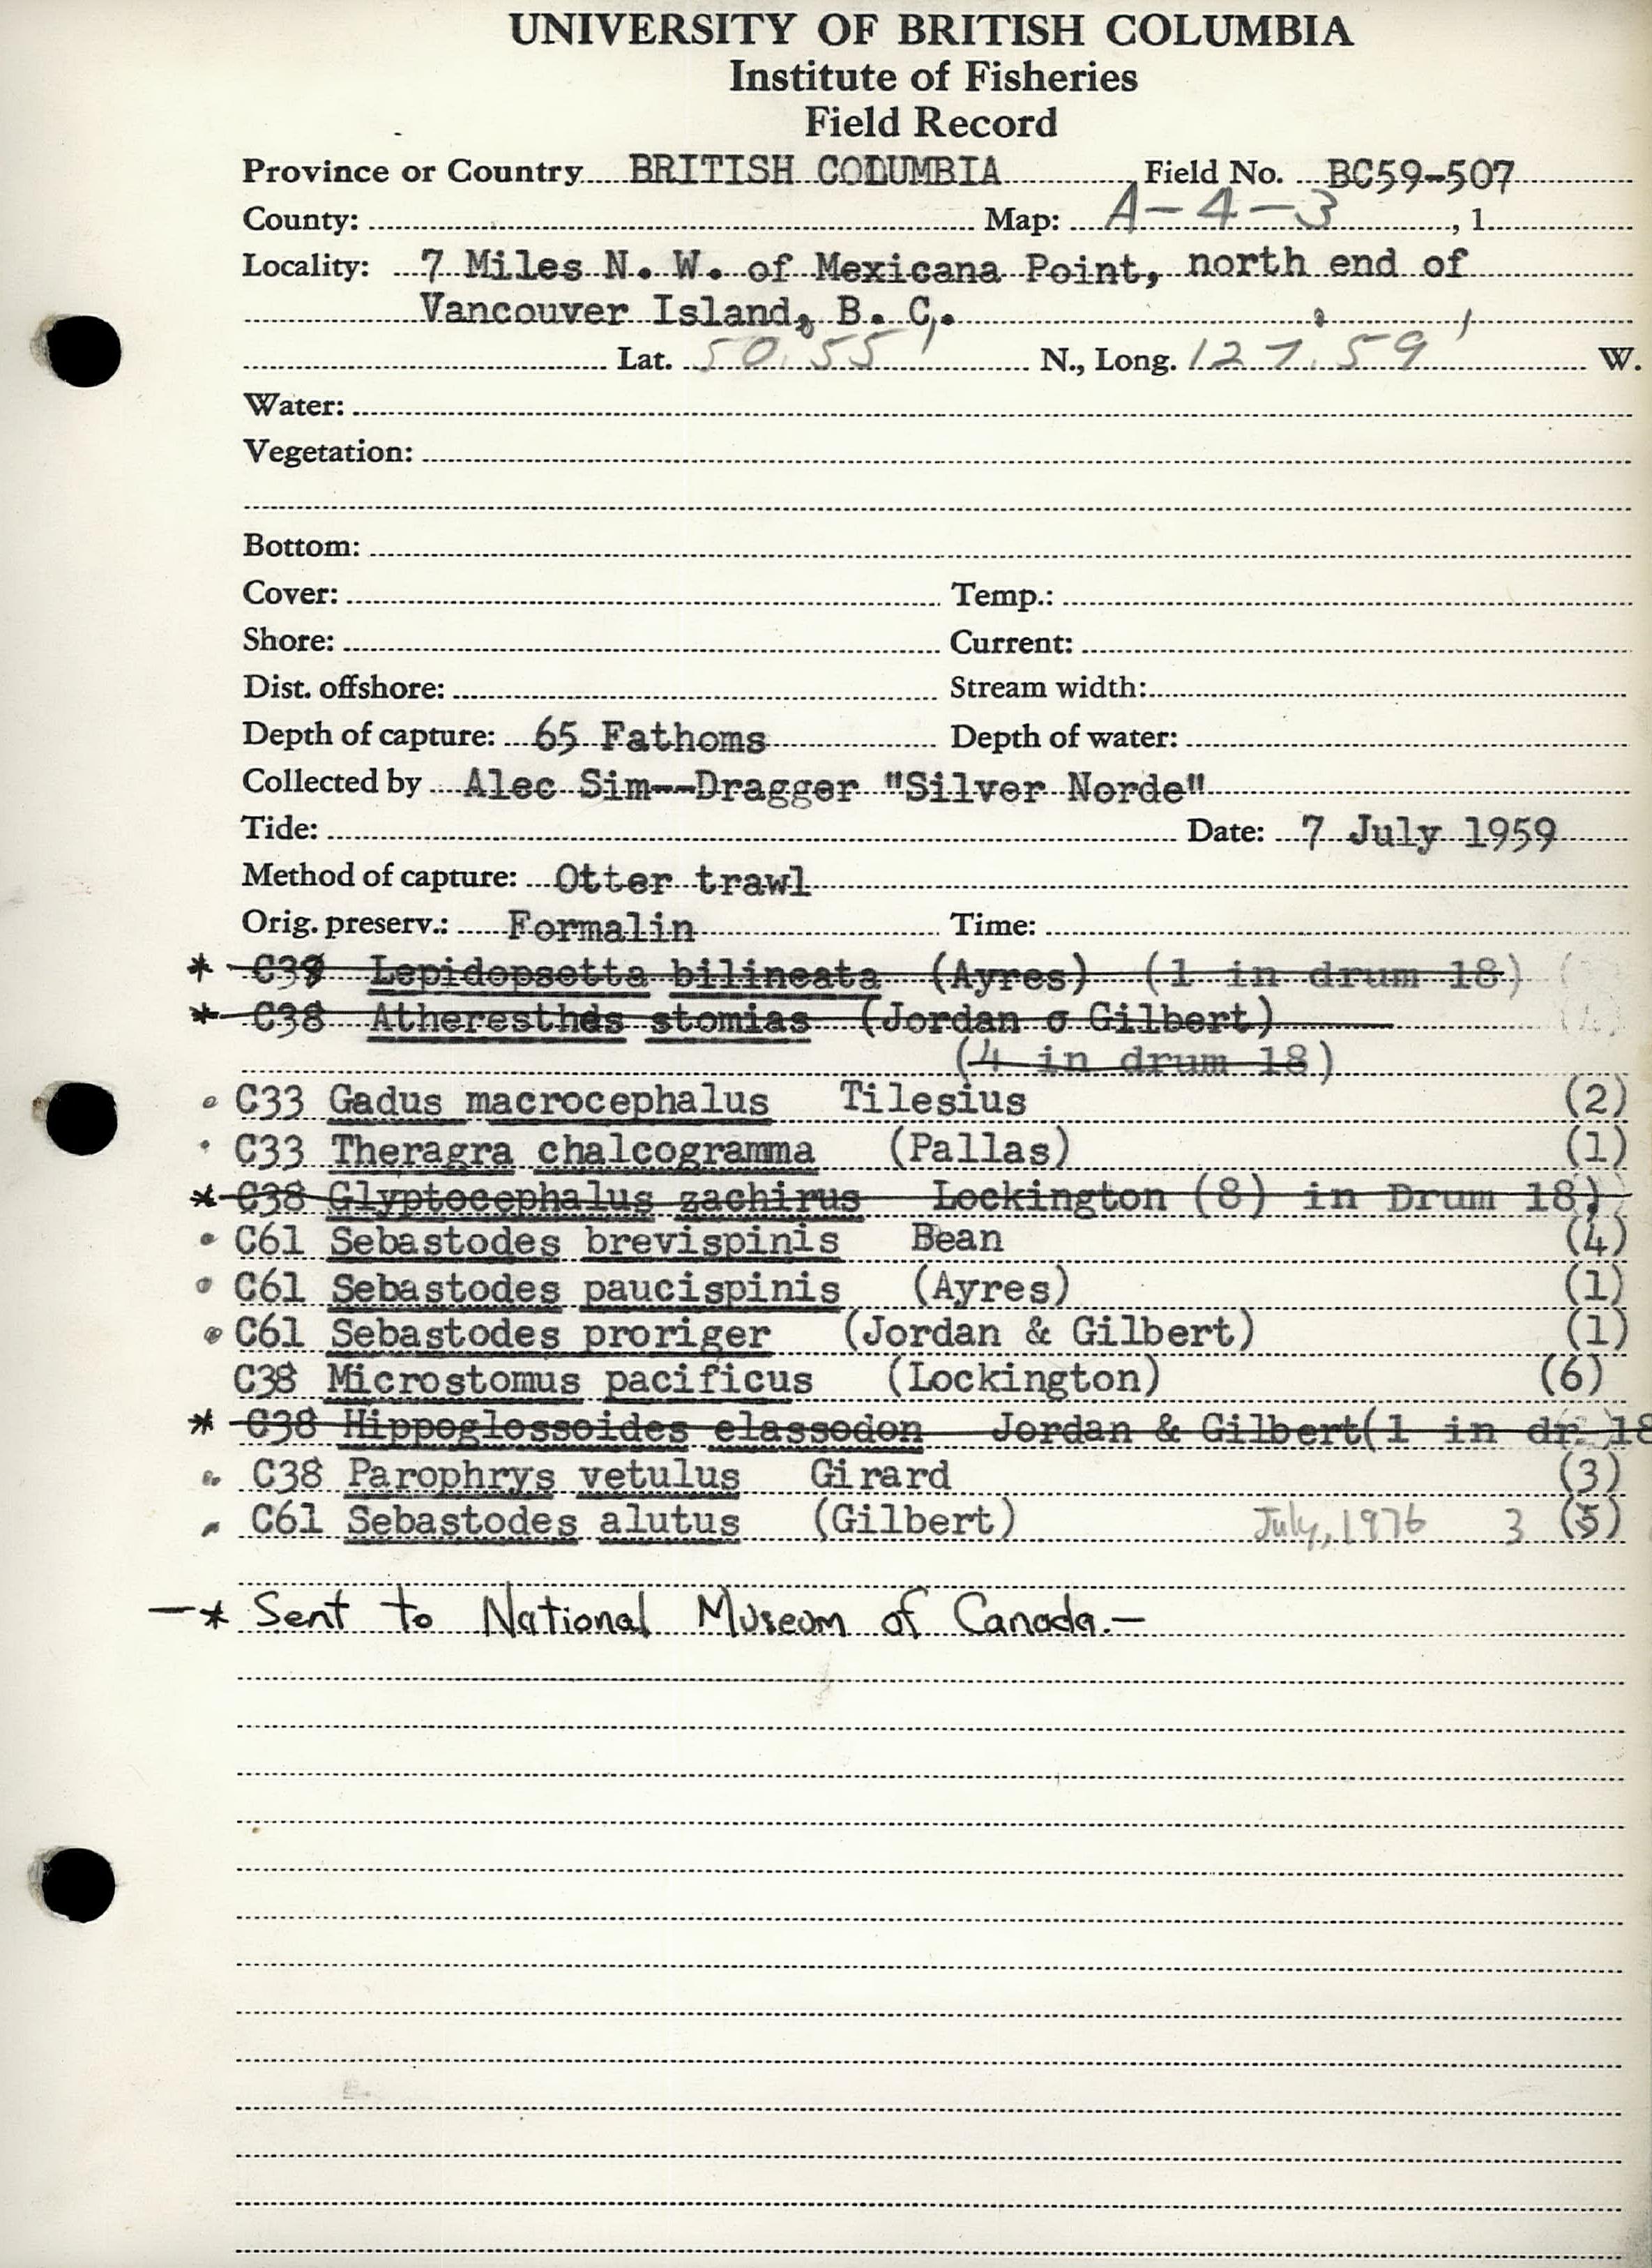 UNIVERSITY OF BRITISH COLUMBIA
Institute of Fisheries
Field Record
Province or Country BRITISH COLUMBIA Field No. BC59-507
County: Map: A-4-3 , 1
Locality: 7 Miles N. W. of Mexicana Point, north end of
Vancouver Island, B. C.
Lat. 50.55' N., Long. 127.59' W.
Water:
Vegetation:
Bottom:
Cover: Temp.:
Shore: Current:
Dist. offshore: Stream width:
Depth of capture: 65 Fathoms Depth of water:
Collected by Alec Sim--Dragger "Silver Norde"
Tide: Date: 7 July 1959
Method of capture: Otter trawl
Orig. preserv.: Formalin Time:
* Lepidopsetta bilineata (Ayres) (1 in drum 18)
* C38 Atheresthes stomias (Jordan & Gilbert)
(4 in drum 18)
C33 Gadus macrocephalus Tilesius (2)
C33 Theragra chalcogramma (Pallas) (1)
* C38 Glyptocephalus zachirus Lockington (8) in Drum 18)
C61 Sebastodes brevispinis Bean (4)
C61 Sebastodes paucispinis (Ayres) (1)
C61 Sebastodes proriger (Jordan & Gilbert) (1)
C38 Microstomus pacificus (Lockington) (6)
* C38 Hippoglossoides elassodon Jordan & Gilbert(1 in dr. 18
C38 Parophrys vetulus Girard (3)
C61 Sebastodes alutus (Gilbert) July, 1976 3 (5)
—* Sent to National Museum of Canada.—